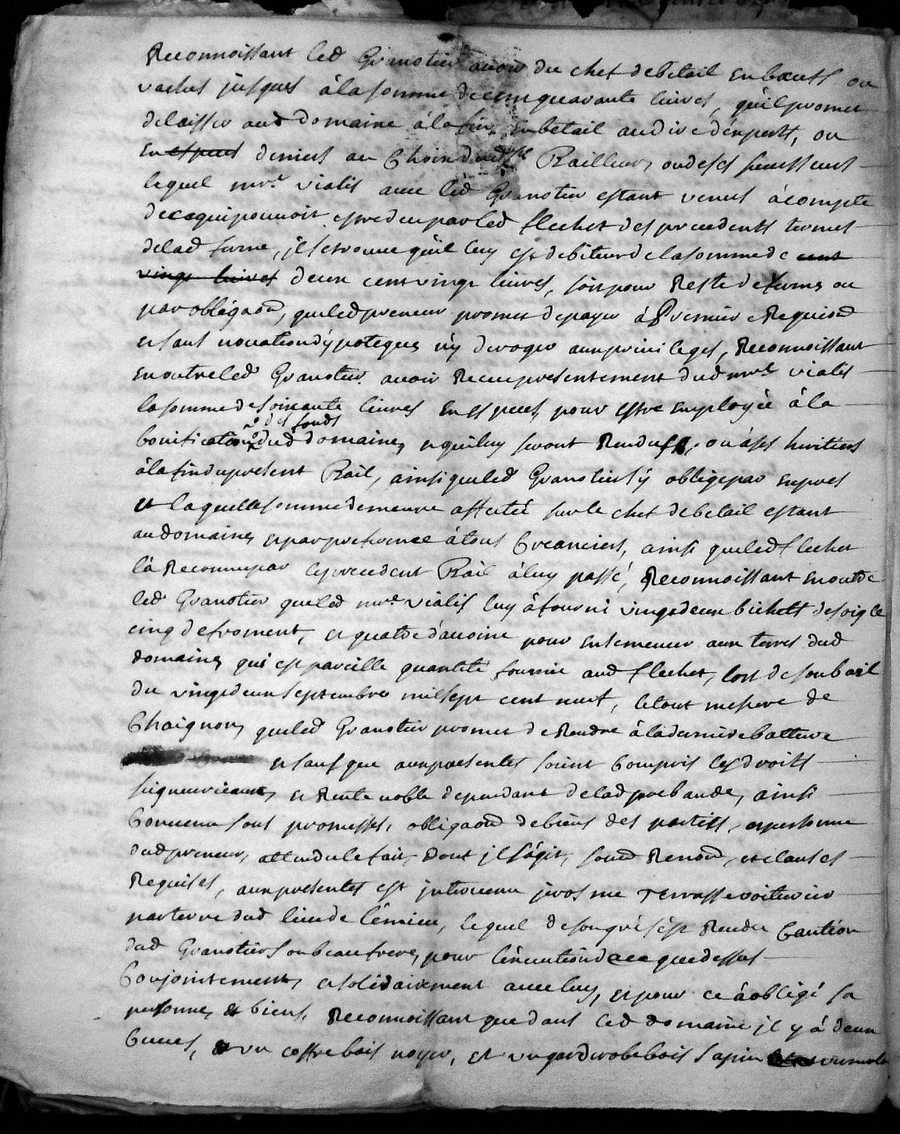 Reconnoissant led Granotier avoir du chef debetail en bœufs ou
vaches jusques à la somme de cinquavante livres, quil promet
delaisser aud domaine à la fin en betail au dire dexperts, ou
en especes deniers au choix dud Sr Bailleur, ou de ses successeurs
lequel mre Vialis avec led Granotier estant venus à compte
de ce qui pouvoit estre deu par led flechet des precedents termes
de lad ferme, il se trouve quil luy est debiteur de la somme de cent
vingt livres de cent vingt livres, soit pour Reste de ferme ou
par obligaon, que led preneur promet de payer à Premiere Requison
et sans novation dypoteques ny deroger aux privileges, Reconnoissant
en outre led Granotier avoir Receu presentement dud mre Vialis
la somme de soixante livres en especes pour estre employée à la
des fonds
bonification dud domaine, et qui luy seront Rendues, ou à ses heritiers
à la fin du present Bail, ainsi que led Granotier sy oblige par expres
et laquelle somme demeure affectée sur le chef debetail estant
au domaine et par preferance à tous Creanciers, ainsi que led flechet
là Reconnu par le precedent Bail à luy passé, Reconnoissant en outre
led Granotier que led mre Vialis luy à fourni vingt deux bichets de soigle
cinq de froment, et quatre davoine pour ensemencer aux terres dud
domaine, qui est pareille quantité fournie aud flechet, lors de son bail
du vingt deux septembre mil sept cent neuf, le tout mesure de
Chaignon, que led Granotier promet de Rendre à la derniere batture
et sauf que aux presentes soient Compris les droits
seigneuriaux, et Rente noble dependant de lad prebande, ainsi
Convenu sous promesses, obligaon de biens des parties, et personne
dud preneur, attendu le fait, dont il sagit, soum Renon, et clauses
Requises, aux presentes est intervenu jerosme Terrasse voiturier
par terre dud lieu de lémieu, lequel de son gré sest Rendu Caution
dud Granotier son beau frere, pour lexecution de ce que dessus
Conjointement, et solidairement avec luy, et pour ce à obligé sa
personne, et biens, Reconnoissant que dans led domaine il y à deux
Cuves, un coffre bois noyer, et un garderobe bois sapin